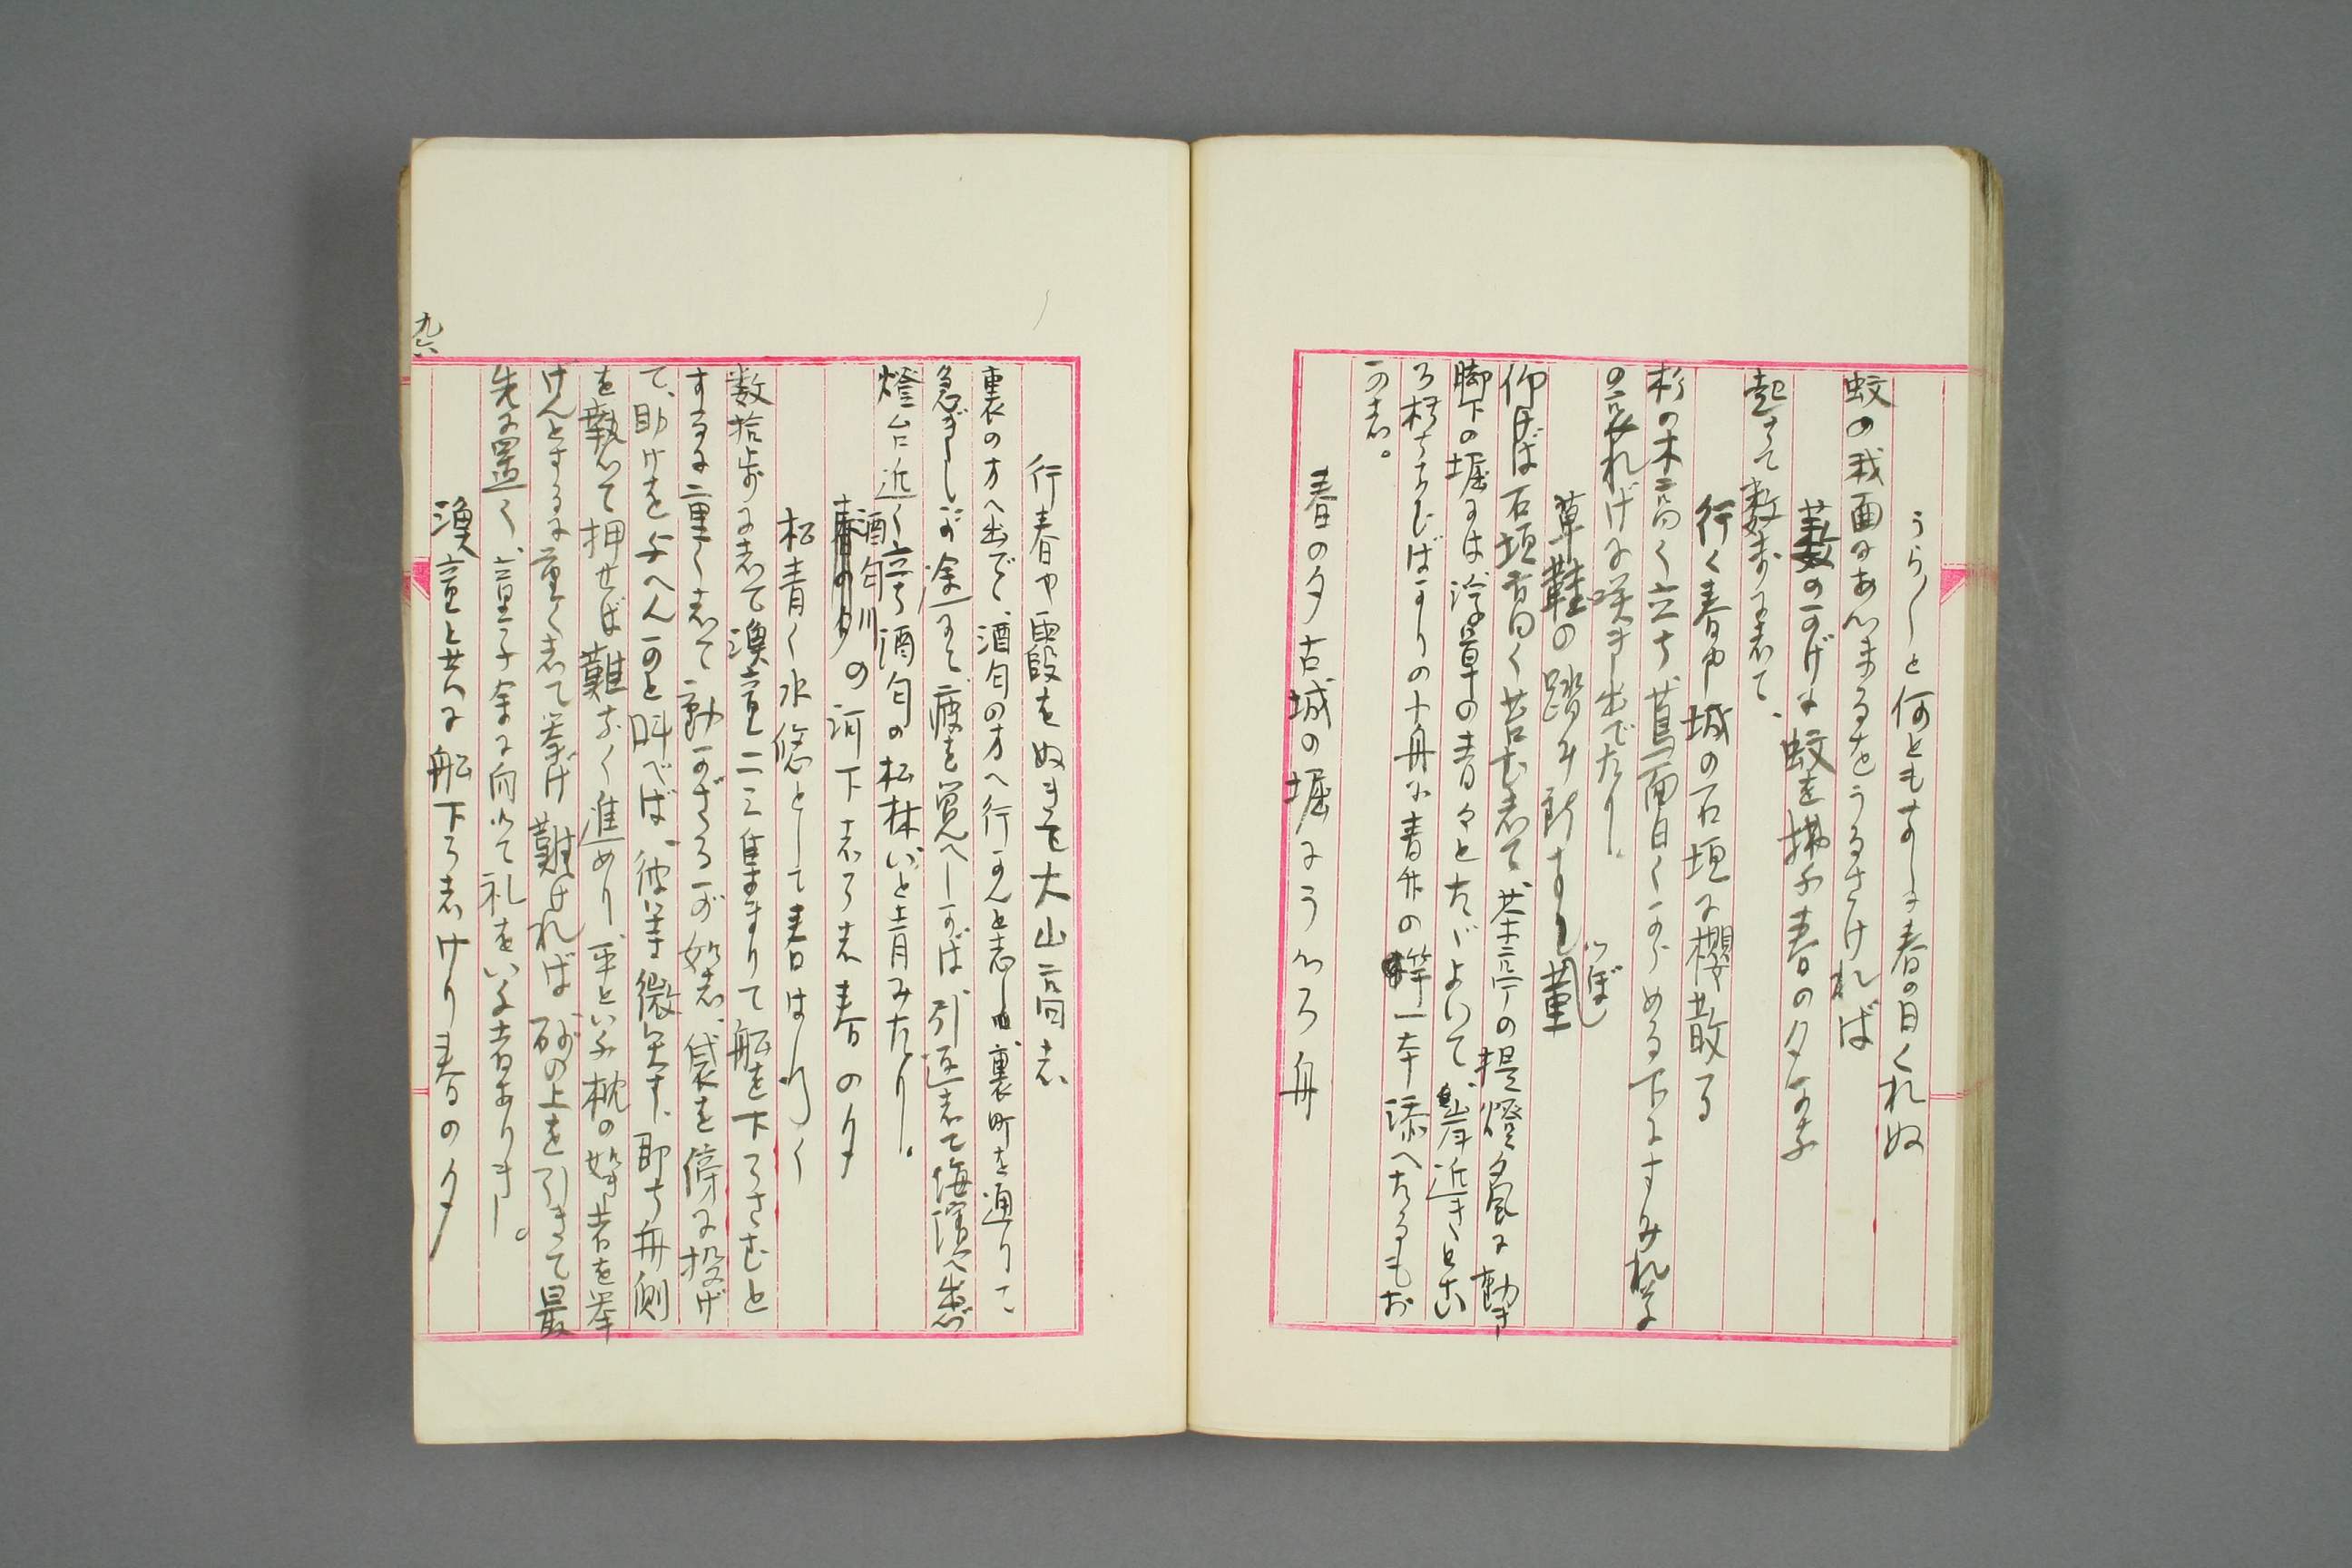 うら〳〵と何ともなしに春の日くれぬ
蚊の我面にあつまるをうるさければ
藪のかげに蚊を拂ふ春の夕かな
起きて数歩にして、
行く春や城の石垣に櫻散る
杉の木高く立ち、蔦面白くからめる下にすみれ草
の哀れげに咲き出でたり。
草鞋の踏み断すな菫
つぼ
仰げば石垣面白く苔むして、茶亭の提燈夕風に動き
脚下の堀には浮草の青々とたゞよいて、岸近きところ
に朽ちたむばかりの小舟に青竹の竿一本添へたるもお
かし。
春の夕古城の堀にうかる舟
行春や霞をぬきて大山高し
裏の方へ出で、酒匂の方へ行かんとし、裏町を通りて
急ぎしが途にて疲を覚へしかば引返して海濱へ出づ
燈台近く立てば酒匂の松林いと青みたり。
酒匂川の河下しるし春の夕
松青く水悠として春はゆく
数拾歩にして漁童二三集まりて船を下ろさむと
するに重くして動かざるが如し、袋を傍に投げ
て、助けを与へんかと叫べば、彼等微笑す、即ち舟側
を執って押せば難なく進めり、平といふ枕の如き者を挙
げんとするに重くして挙げ難ければ砂の上を引きて最
先に置く、童子余に向って礼をいふ者ありき。
漁童と共に船下ろしけり春の夕
九六